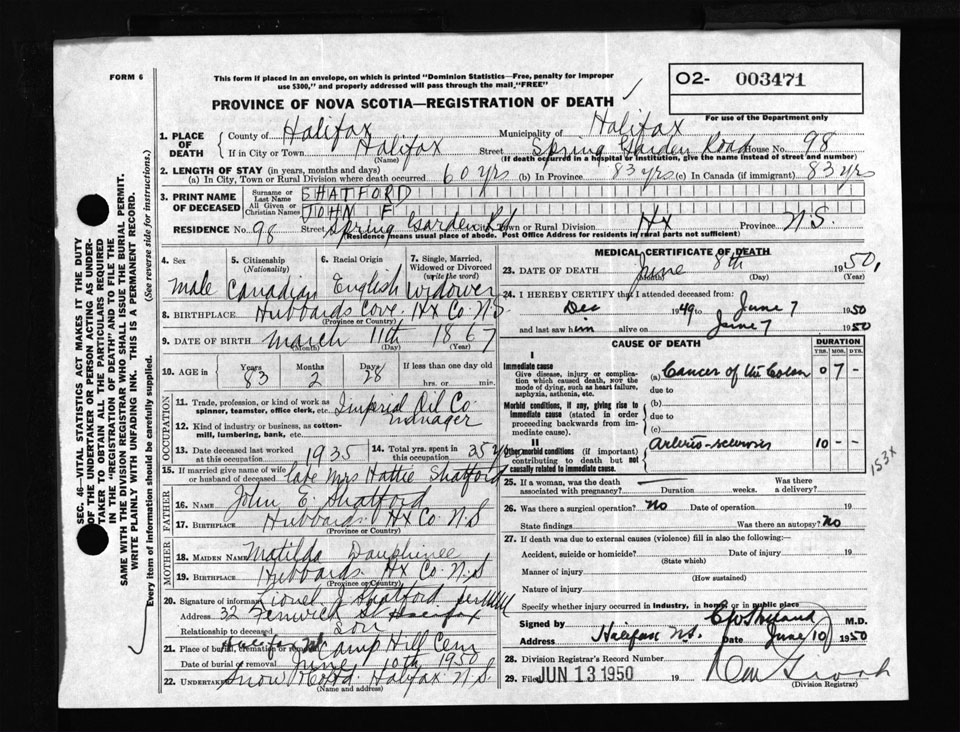 FORM 6
This form if placed in an envelope, on which is printed "Dominion Statistics—Free, penalty for improper
use $300," and properly addressed will pass through the mail, "FREE"
O2- 003471
For use of the Department only
PROVINCE OF NOVA SCOTIA—REGISTRATION OF DEATH
1. PLACE OF DEATH
County of Halifax Municipality of Halifax
If in City or Town Halifax Street Spring Garden Road House No. 98
(Name) (If death occurred in a hospital or institution, give the name instead of street and number)
2. LENGTH OF STAY (in years, months and days)
(a) In City, Town or Rural Division where death occurred 60 yrs (b) In Province 83 yrs (c) In Canada (if immigrant) 83 yrs
3. PRINT NAME OF DECEASED
Surname or Last Name SHATFORD
All Given or Christian Names JOHN F
RESIDENCE No. 98 Street Spring Garden Rd City, Town or Rural Division Hx Province N.S.
(Residence means usual place of abode. Post Office Address for residents in rural parts not sufficient)
4. Sex male
5. Citizenship (Nationality) Canadian
6. Racial Origin English
7. Single, Married, Widowed or Divorced (write the word) Widower
8. BIRTHPLACE Hubbards Cove. Hx Co. N.S
(Province or Country)
9. DATE OF BIRTH March 11th 1867
(Month) (Day) (Year)
10. AGE in Years 83 Months 2 Days 28 If less than one day old hrs. or min.
OCCUPATION
11. Trade, profession, or kind of work as spinner, teamster, office clerk, etc. Imperial Oil Co
12. Kind of industry or business, as cotton-mill, lumbering, bank, etc. manager
13. Date deceased last worked at this occupation 1935
14. Total yrs. spent in this occupation 35 yrs
15. If married give name of wife or husband of deceased late Mrs Hattie Shatford
FATHER
16. Name John E. Shatford
17. Birthplace Hubbards. Hx Co. N.S
(Province or Country)
MOTHER
18. MAIDEN NAME Matilda Dauphinee
19. BIRTHPLACE Hubbards. Hx Co. N.S
(Province or Country)
20. Signature of informant Lionel J Shatford
Address 32 Fenwick St Halifax
Relationship to deceased Son
21. Place of burial, cremation or removal Camp Hill Cem
Date of burial or removal June 10th 1950
22. Undertaker Snow & Co Ltd. Halifax N.S
(Name and address)
MEDICAL CERTIFICATE OF DEATH
23. DATE OF DEATH June 8th 1950,
(Month) (Day) (Year)
24. I HEREBY CERTIFY that I attended deceased from:
Dec 1949 to June 7 1950
and last saw him alive on June 7 1950
CAUSE OF DEATH
DURATION
YRS. MOS. DYS.
I
Immediate cause
Give disease, injury or complication which caused death, NOT the mode of dying, such as heart failure, asphyxia, asthenia, etc.
(a) Cancer of the Colon 0 7 -
due to
Morbid conditions, if any, giving rise to immediate cause (stated in order proceeding backwards from immediate cause).
(b)
due to
(c)
II
Other morbid conditions (if important) contributing to death but not causally related to immediate cause.
Arterio-sclerosis 10 - -
153x
25. If a woman, was the death associated with pregnancy? — Duration weeks. Was there a delivery?
26. Was there a surgical operation? No Date of operation 19
State findings Was there an autopsy? No
27. If death was due to external causes (violence) fill in also the following:—
Accident, suicide or homicide? Date of injury 19
(State which)
Manner of injury
(How sustained)
Nature of injury
Specify whether injury occurred in Industry, in home, or in public place
Signed by M.D.
Address Halifax N.S. Date June 10 1950
28. Division Registrar's Record Number
29. Filed JUN 13 1950 19
(Division Registrar)
SEC. 46—VITAL STATISTICS ACT MAKES IT THE DUTY
OF THE UNDERTAKER OR PERSON ACTING AS UNDERTAKER TO OBTAIN ALL THE PARTICULARS REQUIRED
IN THE "REGISTRATION OF DEATH" AND TO FILE THE
SAME WITH THE DIVISION REGISTRAR WHO SHALL ISSUE THE BURIAL PERMIT.
WRITE PLAINLY WITH UNFADING INK. THIS IS A PERMANENT RECORD.
Every item of information should be carefully supplied. (See reverse side for instructions.)